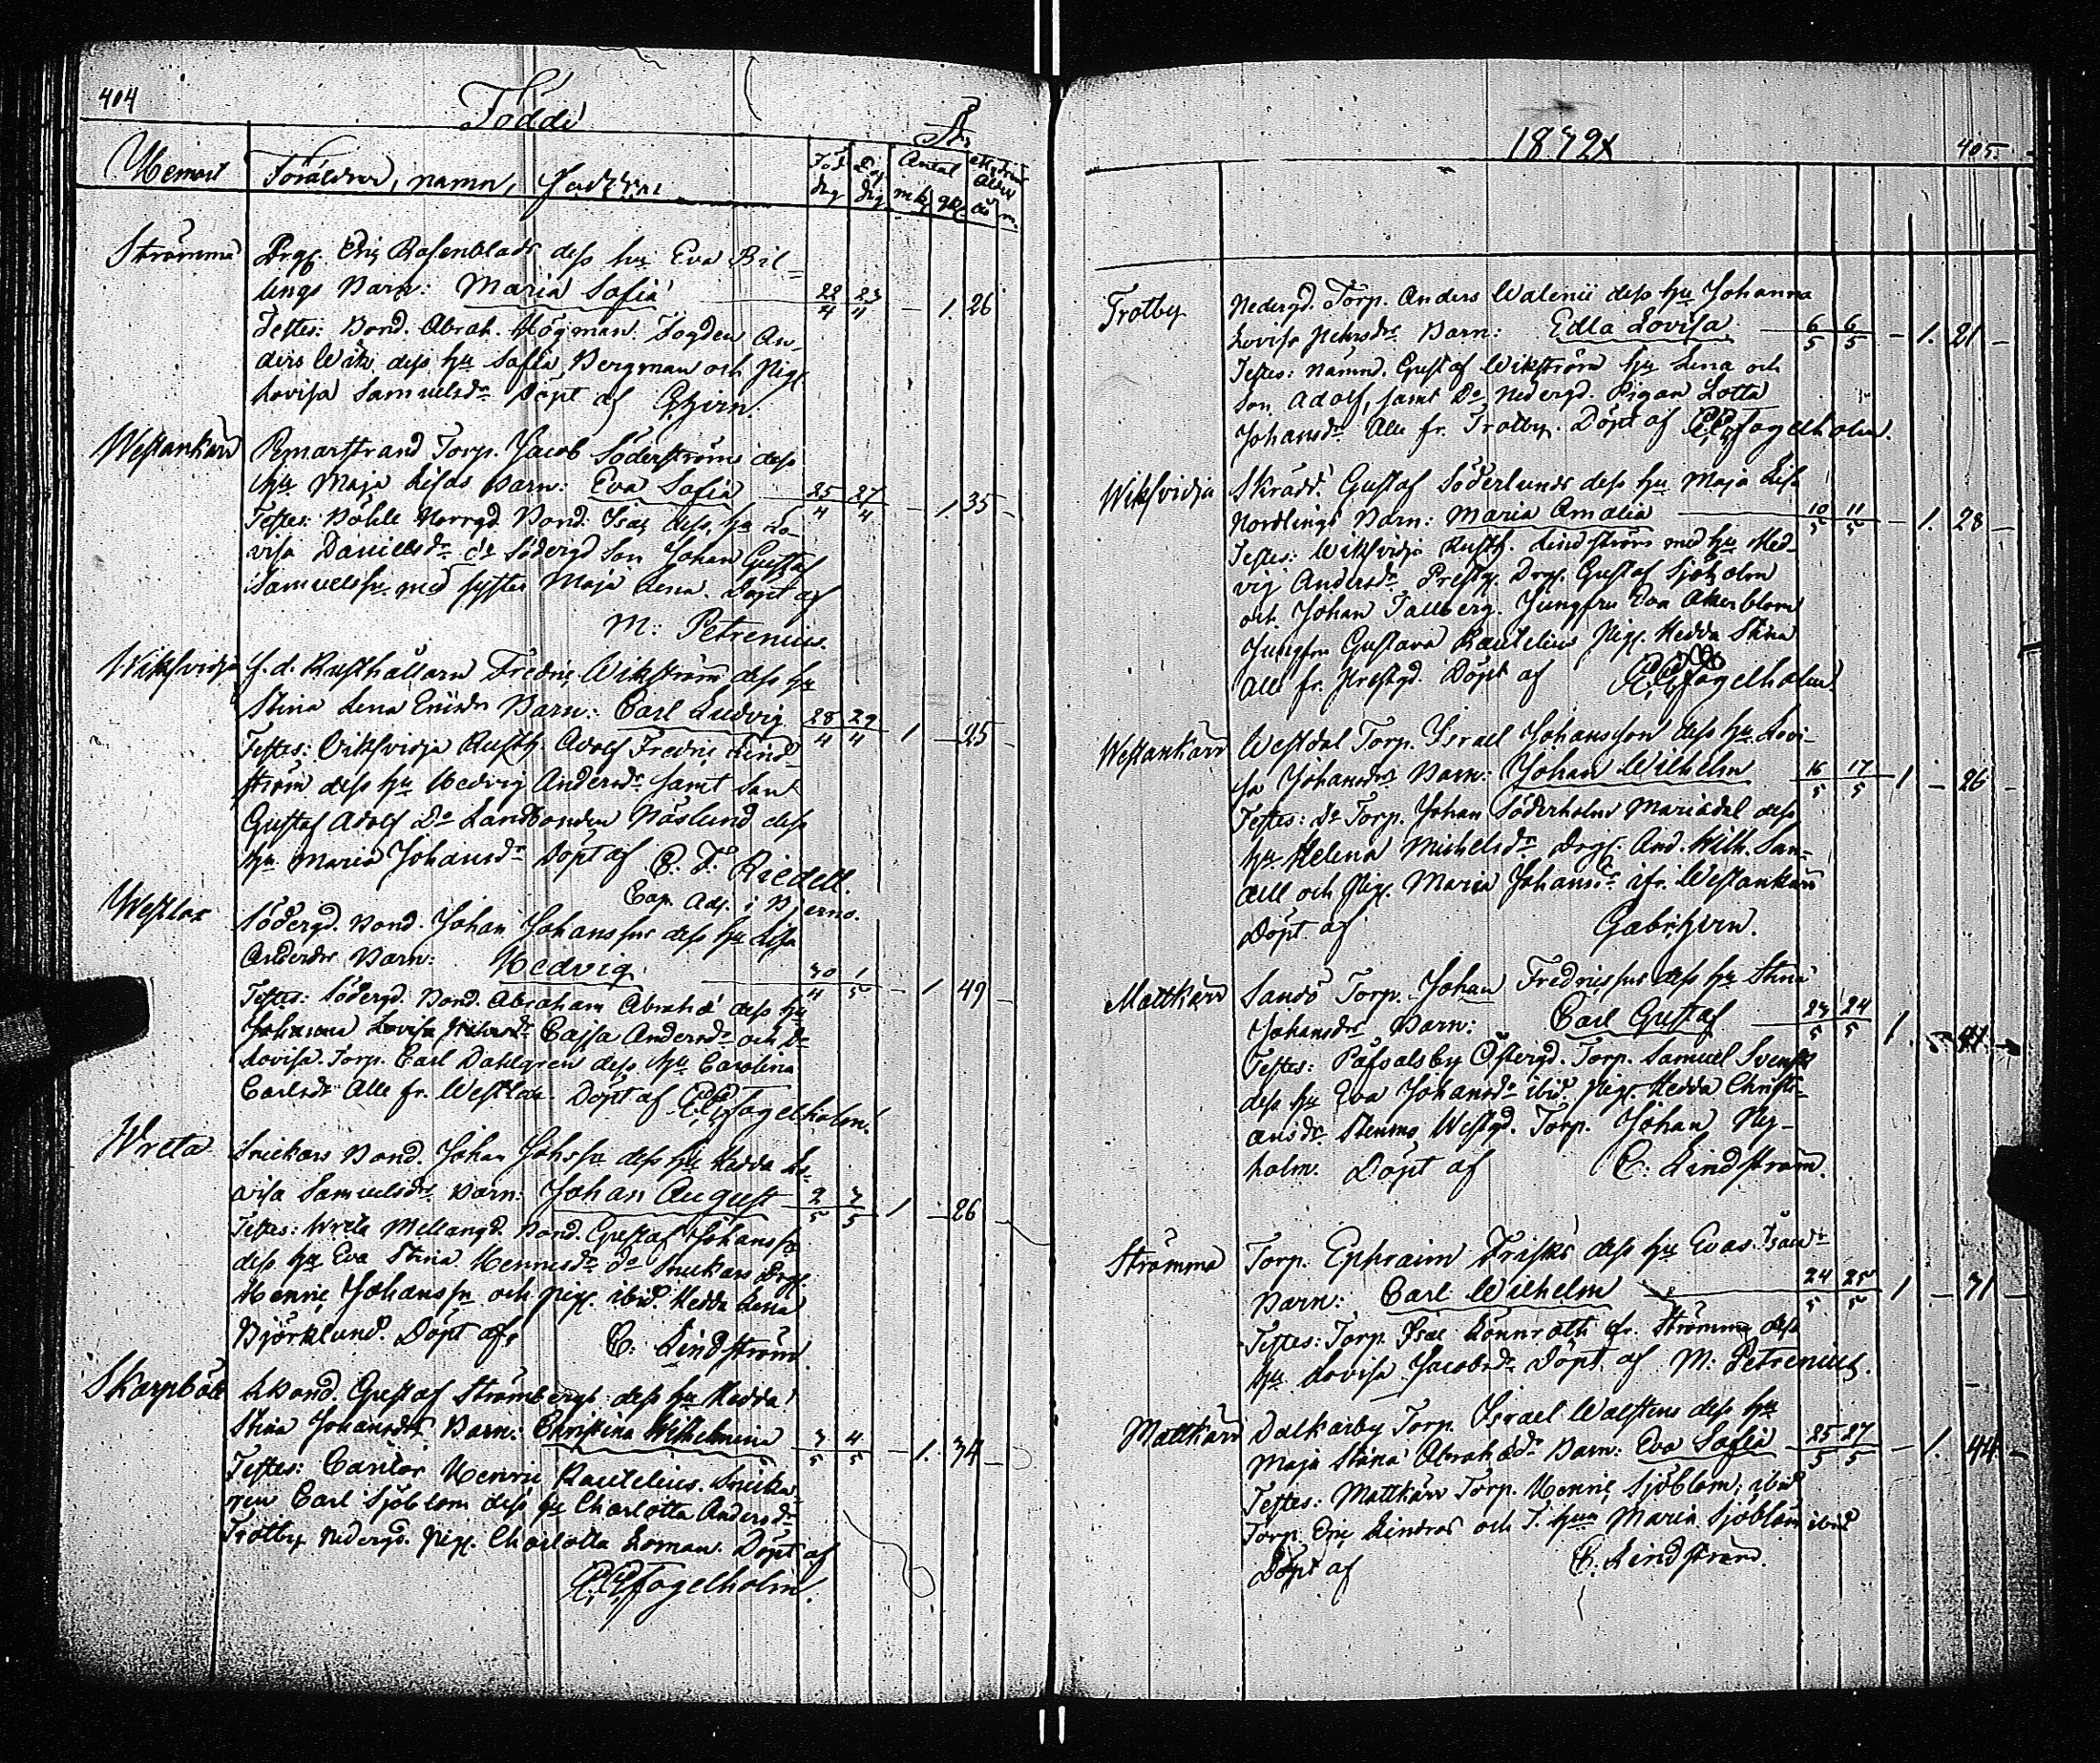 404
Födde År
Hemort Föräldrar, namn, Faddrar Föd. dag Döp. dag Antal mk. qk. Modrens Ålder år m.
Strömma Drg. Eric Rosenblads dess hu Eva Bil-
lings Barn: Maria Sofia 22/4 23/4 – 1. 26
Testes: Bond. Abrah. Högman. Sogden An-
ders Wik dess hu Sofia Bergman och Pig.
Lovisa Samuelsdr Döpt af Hjern.
Westankärr Torp. Jacob Söderströms dess
hu Maja Lisas Barn: Eva Sofia 25/4 27/4 – 1. 35 –
Testes: Böhle Norrgd. Bond. Isac dess hu Lo-
visa Danielsdr do Södergd Son Johan Gustaf
Samuelssn med syster Maja Lena. Döpt af
M: Petrenius.
Wiksvidja f.d. Rusthållarn Fredric Wikström dess hu
Stina Lena Ericsdr Barn: Carl Ludvig 28/4 29/4 1 – 25 –
Testes: Wiksvidja Rusth. Adolf Fredric Lind-
ström dess hu Hedvig Andersdr samt
Gustaf Adolf Do Landbonden Näslund dess
hu Maria Johansdr Döpt af C. F. Riedell.
Cap. Adj. i Bjerno.
Westlax Södergd. Bond. Johan Johanssns dess hu Lisa
Andersdrs Barn: Hedvig 30/4 1/5 – 1 49 –
Testes: Södergd. Bond. Abraham Abrahs dess hu
Johanna Lovisa Cajsa Andersdr och Do
Lovisa. Torp. Carl Dahlgren dess hu Carolina
Carlsdr Alle fr. Westlax. Döpt af Fogelholm.
Wreta Snickars Bond. Johan Johssns dess hu Hedda Lo-
visa Samuelsdrs Barn: Johan August 2/5 3/5 1 – 26 –
Testes: Wreta Mellangd. Bond. Gustaf Johanssn
dess hu Eva Stina Henricsdr do Snickars Drg.
Henric Johanssn och pig. ibid. Hedda Lena
Björklund. Döpt af C. Lindström
Skarpböle LBond. Gustaf Strömbergs dess hu Hedda
Stina Johansdrs Barn: Christina Wilhelmina 3/5 4/5 – 1. 34 –
Testes: Cantor Henric Rautelius. Snicka-
ren Carl Sjöblom dess hu Charlotta Andersdr
Trotby Nedergd. Pig. Charlotta Loman. Döpt af
Fogelholm.
1872 405.
Trotby Nedergd. Torp. Anders Walenii dess hu Johanna
Lovisa Barn: Edla Lovisa 6/5 6/5 – 1. 21 –
Testes: Nämnd. Gustaf Wikström hu Lena och
Son Adolf, samt Do Nedergd. Pigan Lotta
Johansdr Alle fr. Trotby. Döpt af Fogelholm.
Wiksvidja Skrädd. Gustaf Söderlunds dess hu Maja Lisa
Nordlings Barn: Maria Amalia 10/5 11/5 – 1. 28 –
Testes: Wiksvidja Rusth. Lindström med hu Hed-
vig Andersdr Prestg. Drg. Gustaf Sjöholm
och Johan Tallberg. Jungfru Eva Åkerblom
Jungfru Gustava Rautelius Pig. Hedda Stina
Alle fr. Prestgd. Döpt af Fogelholm.
Westankärr Westdal Torp. Israel Johanssons dess hu Lovi-
sa Johansdrs Barn: Johan Wilhelm 16/5 17/5 1 – 26 –
Testes: Do Torp. Johan Söderholm Mariedal dess
hu Helena Michelsdr Drg. And. Wilh. San-
dell och Pig. Maria Johansdr ifr. Westankärr
Döpt af Gabr. Hjern.
Mattkärr Sandö Torp. Johan Fredricssns dess hu Stina
Johansdrs Barn: Carl Gustaf 23/5 24/5 1 – 41 –
Testes: Påfvalsby Östergd. Torp. Samuel Svensk
dess hu Eva Johansdr ibid. Pig. Hedda Christi-
ansdr Stensmo Westgd. Torp. Johan Ny-
holm. Döpt af C. Lindström.
Strömma Torp. Ephraim Frisks dess hu Evas Isacsdr
Barn: Carl Wilhelm 24/5 25/5 1 – 31 –
Testes: Torp. Isac Lönnroth fr. Strömma dess
hu Lovisa Jacobsdr Döpt af M: Petrenius.
Mattkärr Dalkarby Torp. Israel Walstens dess hu
Maja Stina Abrahsdr Barn: Eva Sofia 25/5 27/5 – 1. 44 –
Testes: Mattkärr Torp. Henric Sjöblom; ibid
Torp. Eric Lindros och J. hun Maria Sjöblom ibid
Döpt af C. Lindström.